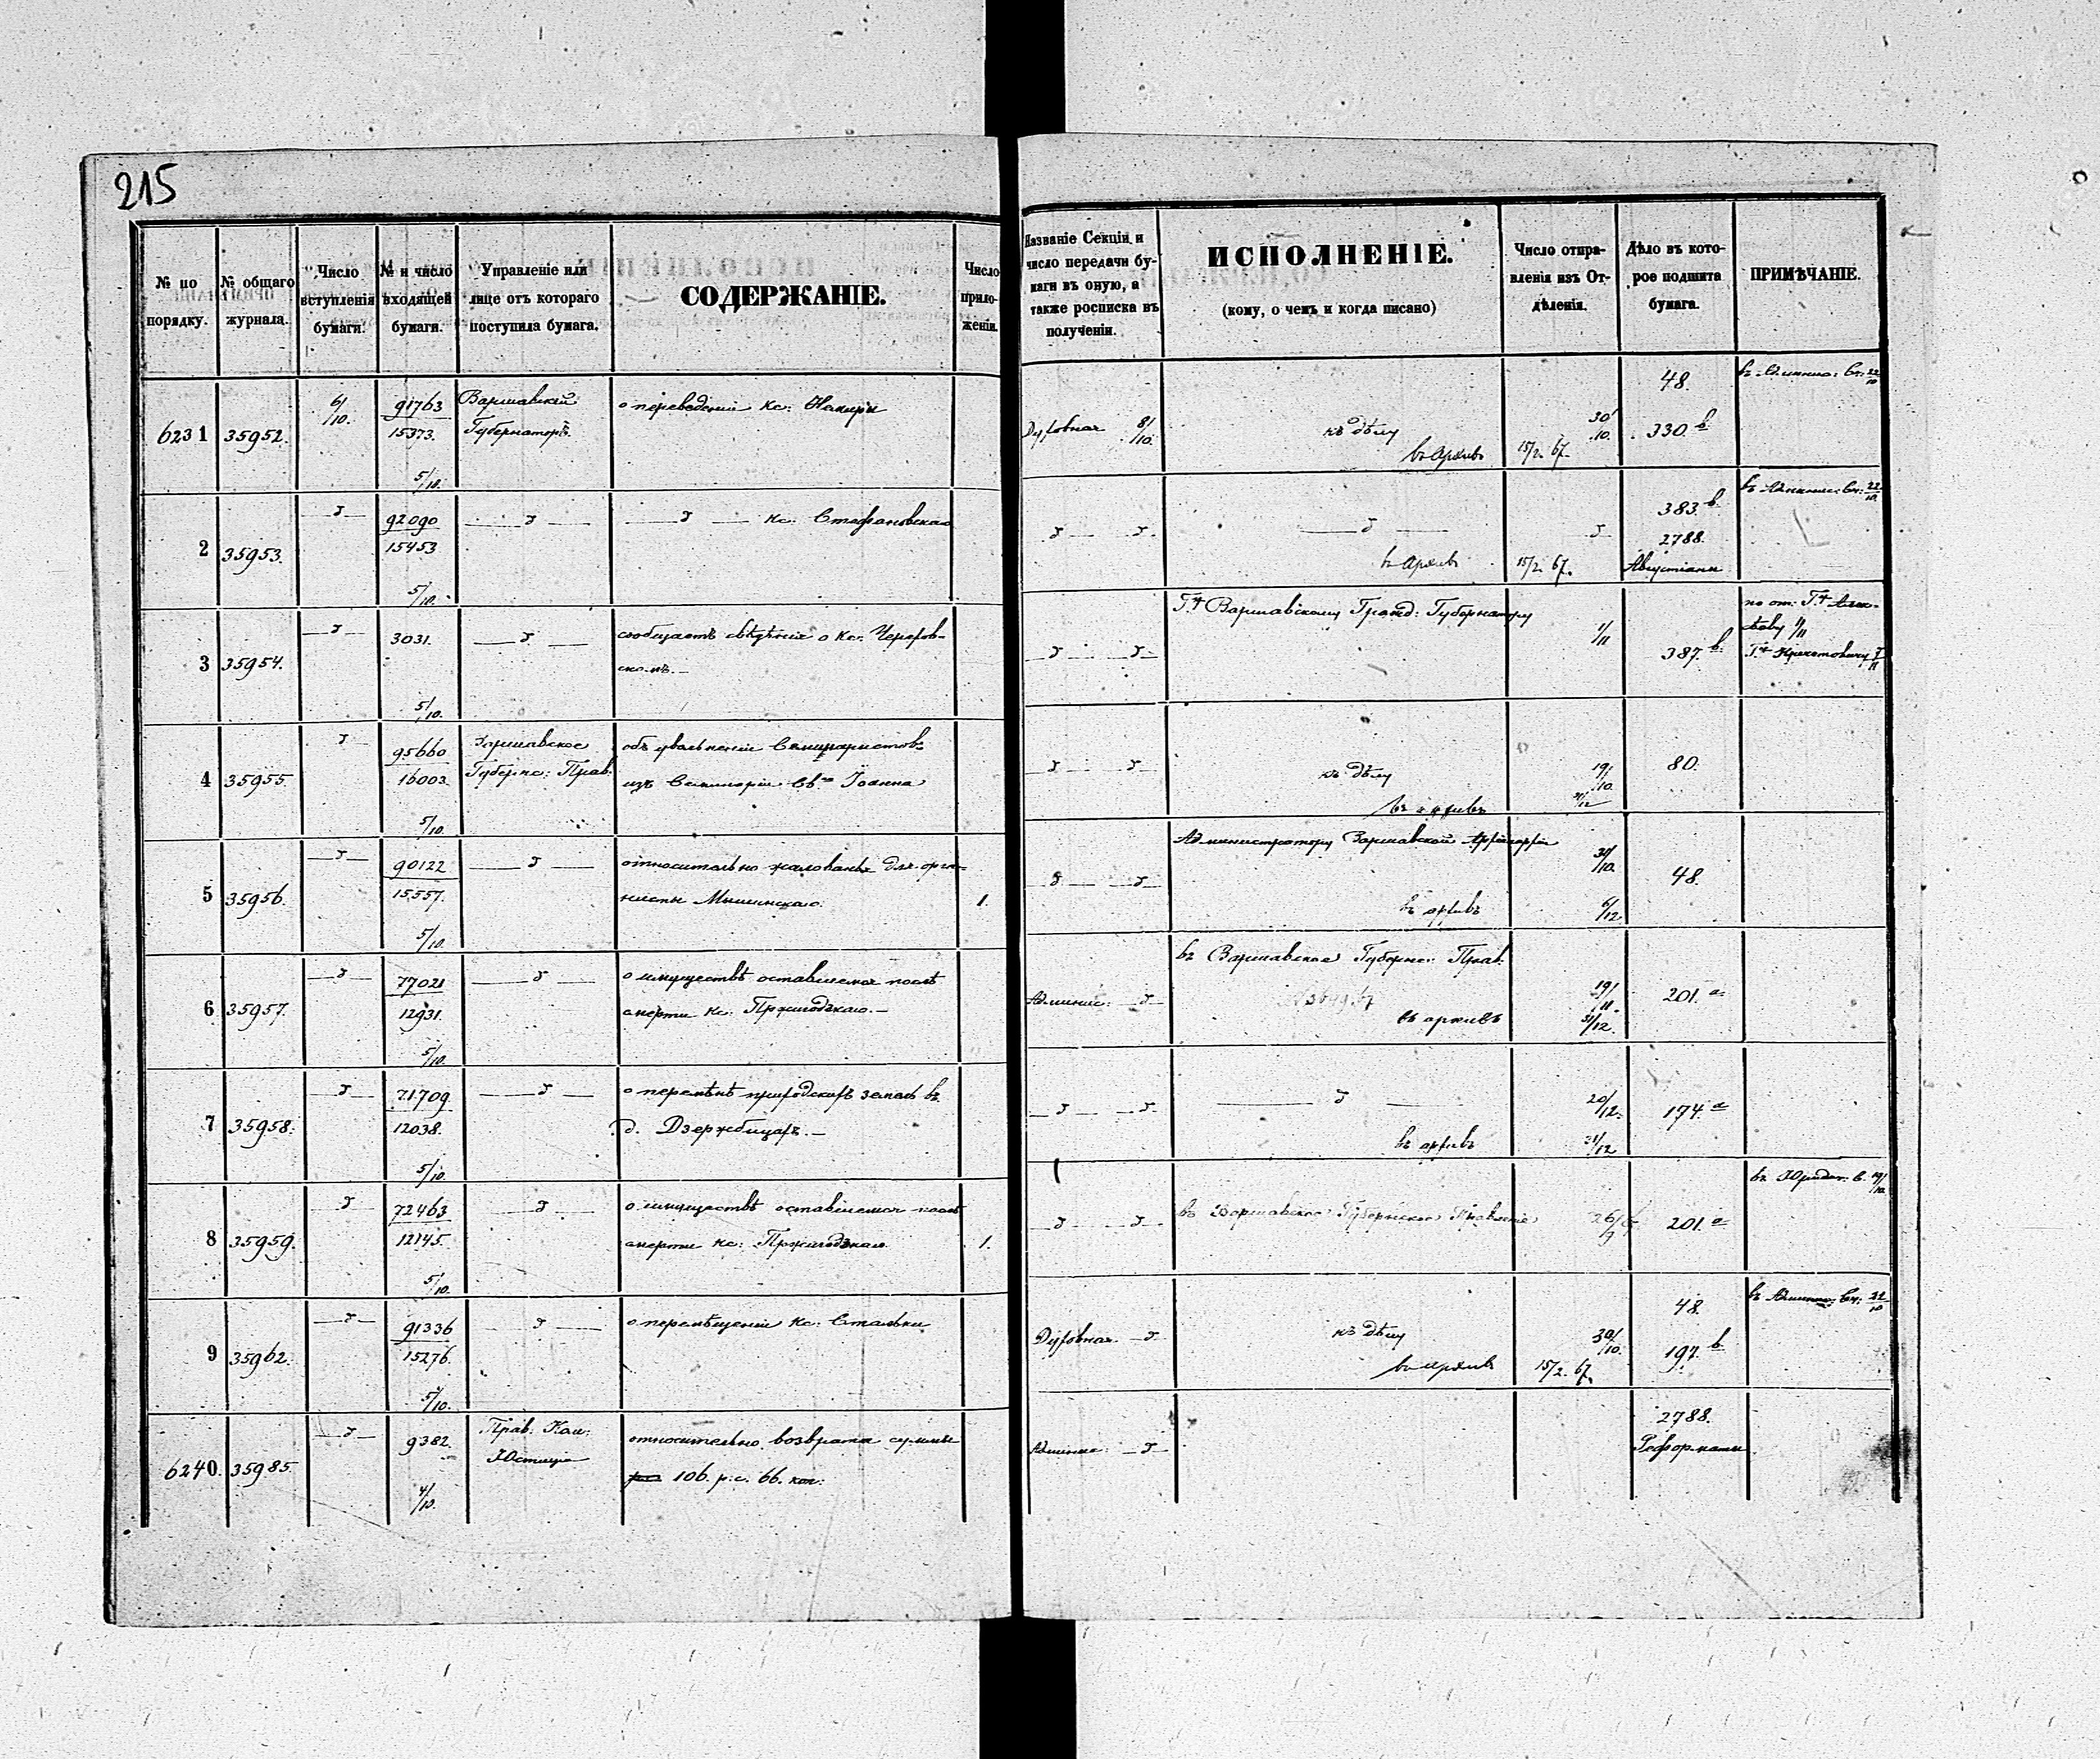 215
№ по порядку.
№ общаго журнала.
Число вступленія бумаги.
№ и число входящей бумаги.
Управленіе или лице отъ котораго поступила бумага.
СОДЕРЖАНІЕ.
Число прило- женій.
Названіе Секціи и число передачи бу- маги въ оную, а также росписка въ полученіи.
ИСПОЛНЕНІЕ.
(кому, о чемъ и когда писано)
Число отпра- вленія изъ От- дѣленія.
Дѣло въ кото- рое подшита бумага.
ПРИМѢЧАНІЕ.
6231 35952. 6/10. 91763 Варшавскій о переведеніи кс:
15373. Губернаторъ.
5/10.
Духовная 8/10. къ дѣлу 30/10. 48. 330 в
въ Архивъ 15/2. 67.
22/10
2 35953. 92090 кс: Стефановскаго
15453
5/10.
въ Архивъ 15/2. 67. 383. в.
2788.
Августіаны
22/10
3 35954. 3031. сообщаетъ свѣдѣнія о кс: Черхов-
скомъ.
5/10.
Варшавскому Гражд: Губернатору 1/11 387. в.
4 35955. 95660 Варшавское объ увольненіи Семинаристовъ
16003. Губернс: Прав: изъ Семинаріи Св. Іоанна
5/10.
къ дѣлу 19/10. 80.
въ архивъ 31/12
5 35956. 90122 относительно жалованья для орга-
15557. нисты Мышинскаго. 1.
5/10.
Администратору Варшавской 30/10. 48.
въ архивъ 6/12.
6 35957. 77021 о имуществѣ оставшемся послѣ
12931. смерти кс: Пржигодзкаго.
5/10.
Админис: въ Варшавское Губернс: Прав. 19/11. 201. а
въ архивъ 31/12.
7 35958. 71709. о перемѣнѣ приходскихъ земель въ
12038. д. Дзержбицахъ.
5/10.
20/12. 174. а
въ архивъ 31/12
8 35959. 72463 о имуществѣ оставшемся послѣ
12145. смерти кс: Пржигодзкаго. 1.
5/10.
въ Варшавское Губернское Правленіе 201. а
въ Юридич. С.
9 35962. 91336 о перемѣщеніи кс: Стальки
15276.
5/10.
Духовная къ дѣлу 30/10. 48.
въ Архивъ 15/2. 67. 197. в.
22/10
6240. 35985. 9382. Прав. Ком: относительно возврата суммы
Юстиціи 106. р.с. 66. коп:
4/10.
Админис: 2788.
Реформаты